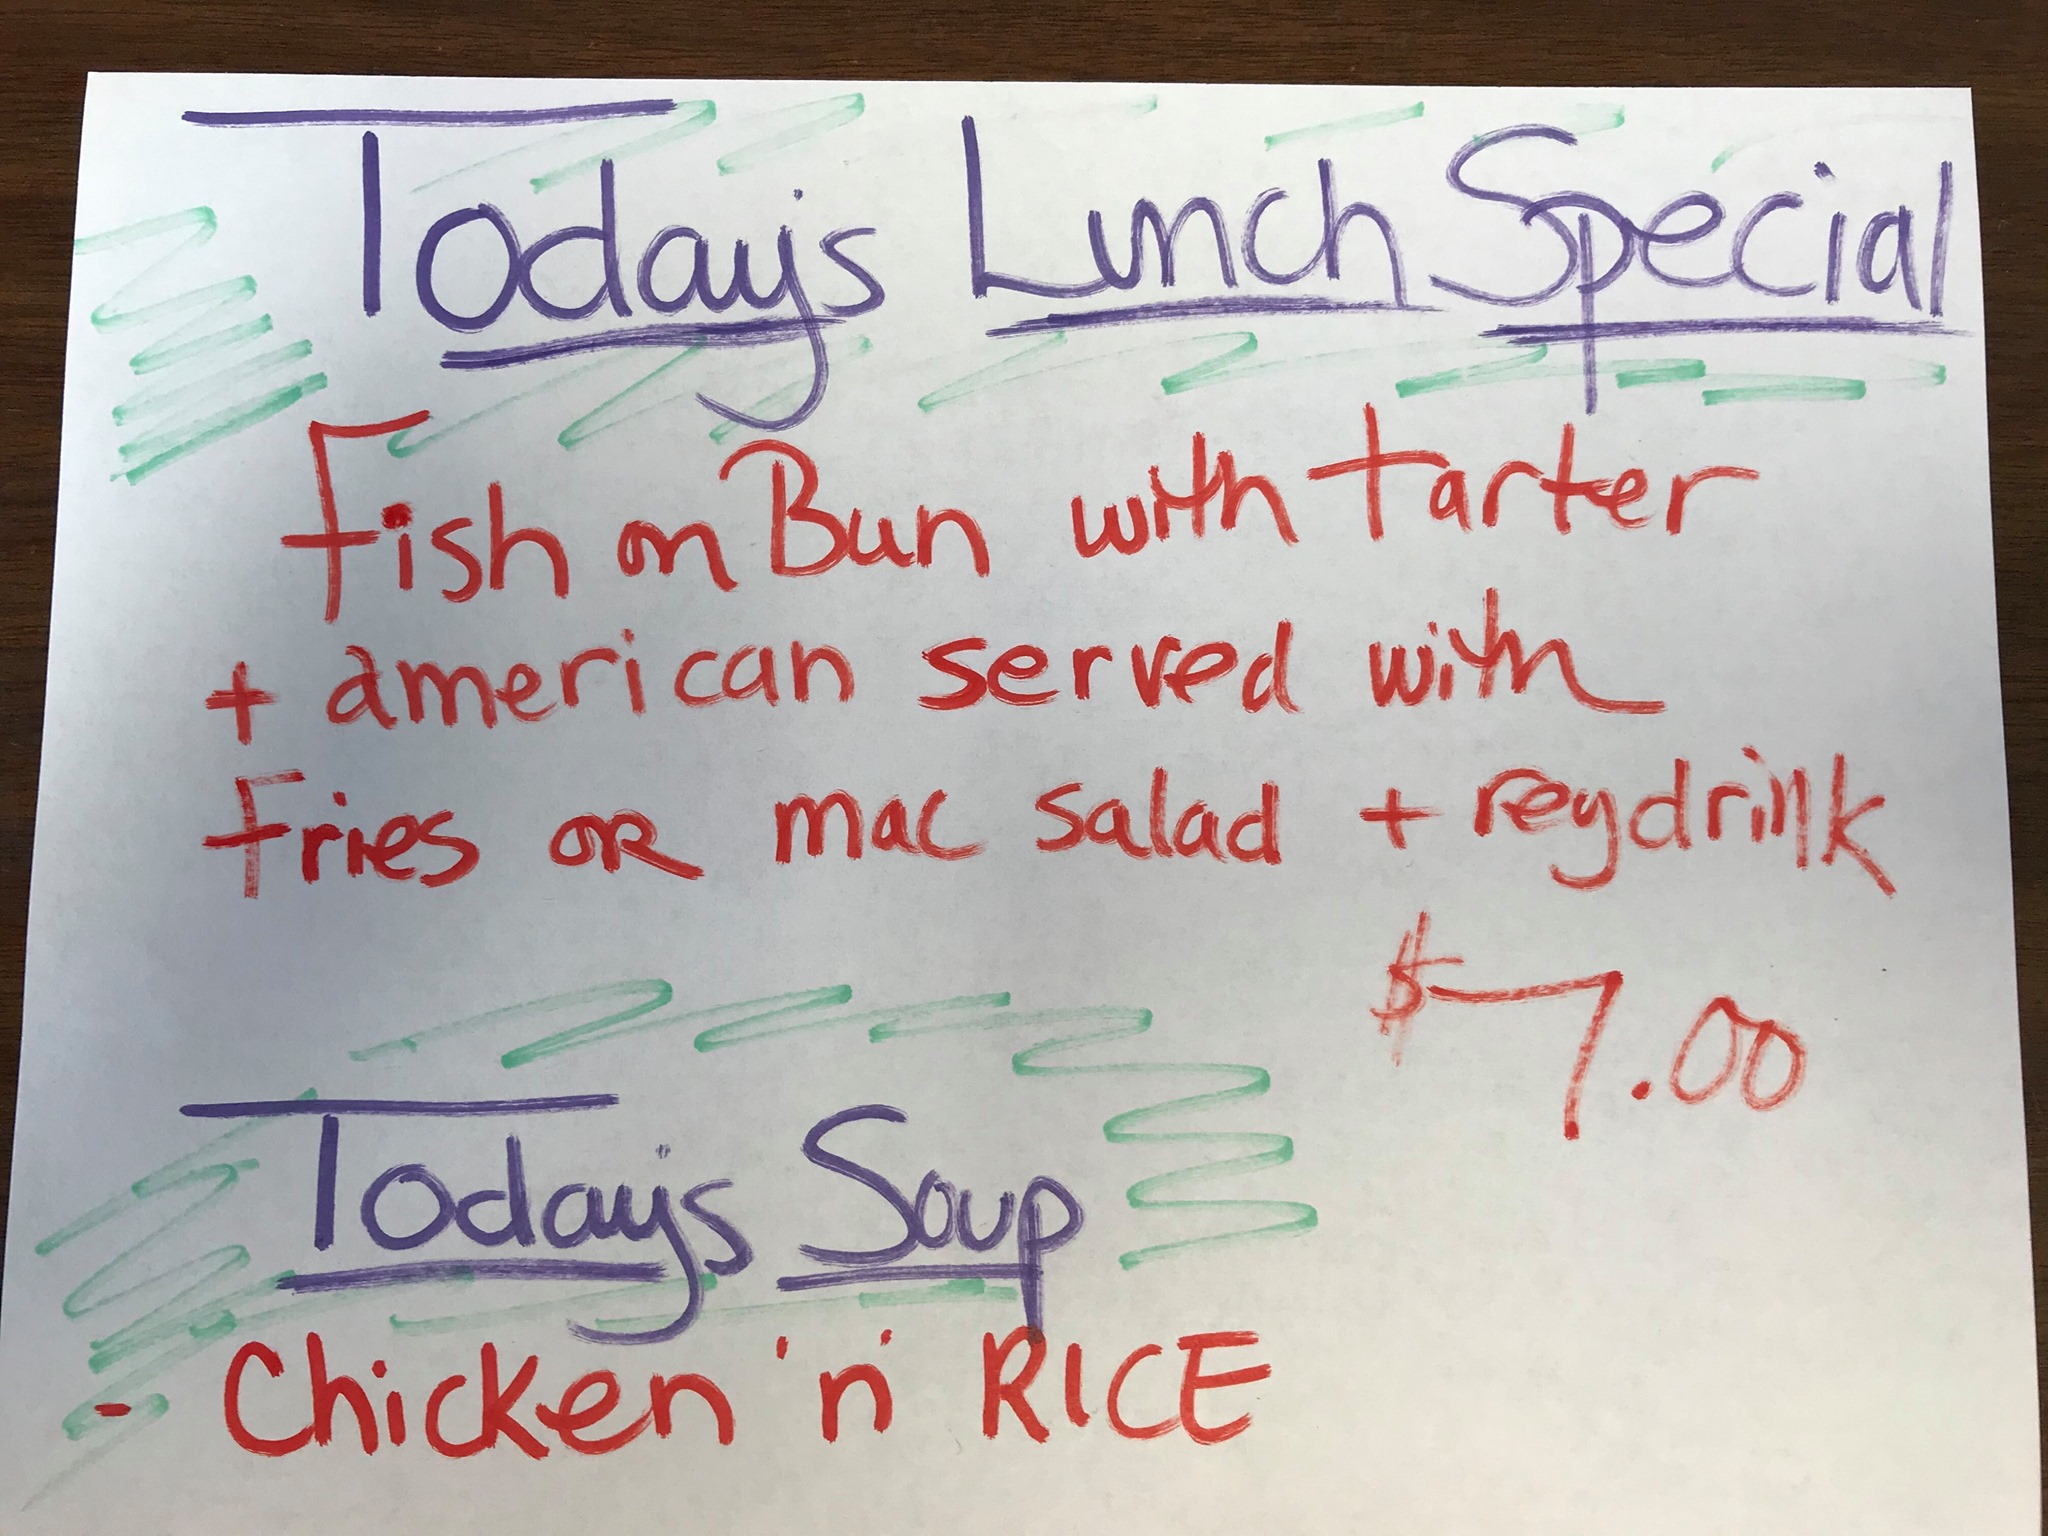 Today's Lunch Special
Fish on Bun with tarter
+ american served with
Fries OR mac salad + reg drink
$7.00
Today's Soup
- Chicken 'n' RICE